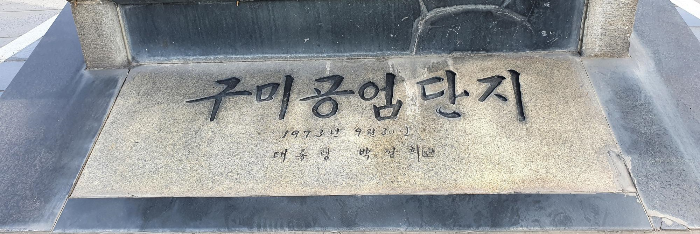 구미공업단지
1973년 9월
대통령 박정희